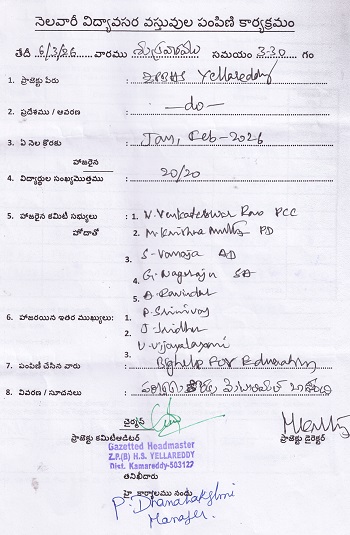 నెలవారీ విద్యావసర వస్తువుల పంపిణి కార్యక్రమం
తేదీ 6/3/26 వారము శుక్రవారము సమయం 3-30 గం
1. ప్రాజెక్టు పేరు : ZPBHS Yellareddy
2. ప్రదేశము / ఆవరణ : —do—
3. ఏ నెల కొరకు : Jan, Feb-2026
హాజరైన
4. విద్యార్థుల సంఖ్యమొత్తము : 20/20
5. హాజరైన కమిటి సభ్యులు : 1. V. Venkateshwar Rao PCC
హోదాతో 2. M. Krishna Murthy PD
3. S. Vanaja AD
4. G. Nagaraju SA
5. A. Ravinder
6. హాజరయిన ఇతర ముఖ్యులు: 1. P. Srinivas
2. J. Sridhar
3. V. Vijayalaxmi
7. పంపిణి చేసిన వారు : Bighelp For Education
8. వివరణ / సూచనలు :
చైర్మన్
ప్రాజెక్టు కమిటఆడిటర్ ప్రాజెక్ట్ డైరెక్టర్
Gazetted Headmaster
Z.P.(B) H.S. YELLAREDDY
Dist. Kamareddy-503122
తనిఖీదారు
హె. కార్యాలము నందు
P. Dhanalakshmi
Manager.